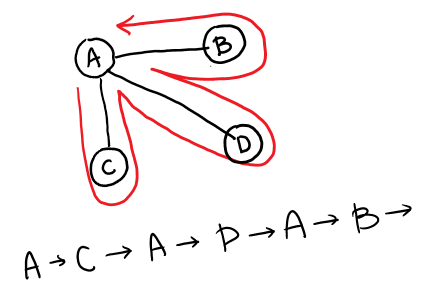 A
B
C
D
A → C → A → D → A → B →